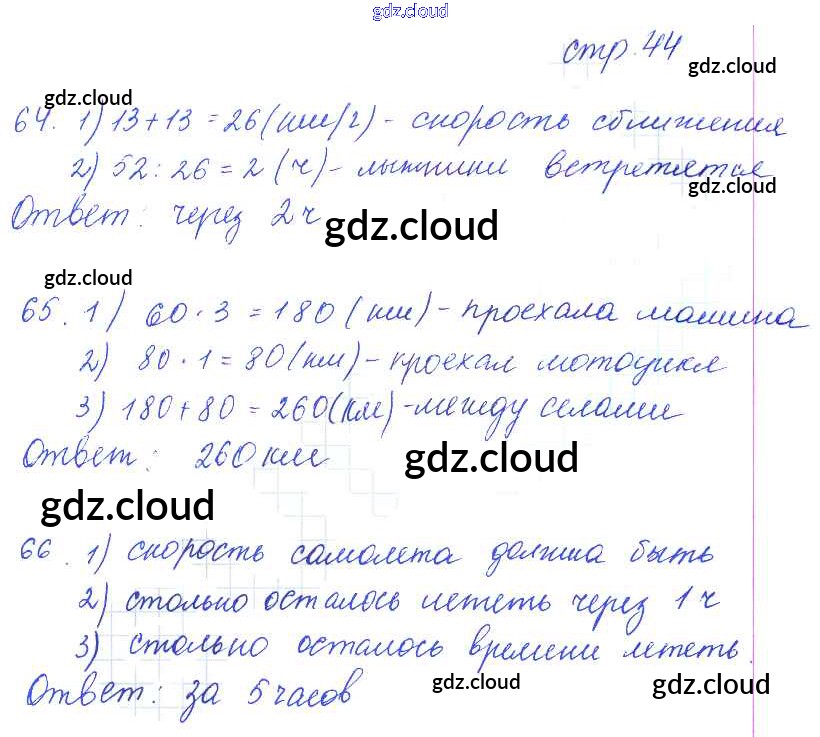 gdz.cloud
стр. 44
gdz.cloud
gdz.cloud
64. 1) 13+13 = 26 (км/ч) - скорость сближения
gdz.cloud
2) 52 : 26 = 2 (ч) - лыжники встретятся
gdz.cloud
Ответ: через 2 ч
gdz.cloud
gdz.cloud
65. 1) 60 · 3 = 180 (км) - проехала машина
2) 80 · 1 = 80 (км) - проехал мотоцикл
3) 180 + 80 = 260 (км) - между селами
Ответ: 260 км
gdz.cloud
gdz.cloud
66. 1) скорость самолета должна быть
2) столько осталось лететь через 1 ч
3) столько осталось времени лететь.
Ответ: за 5 часов
gdz.cloud
gdz.cloud